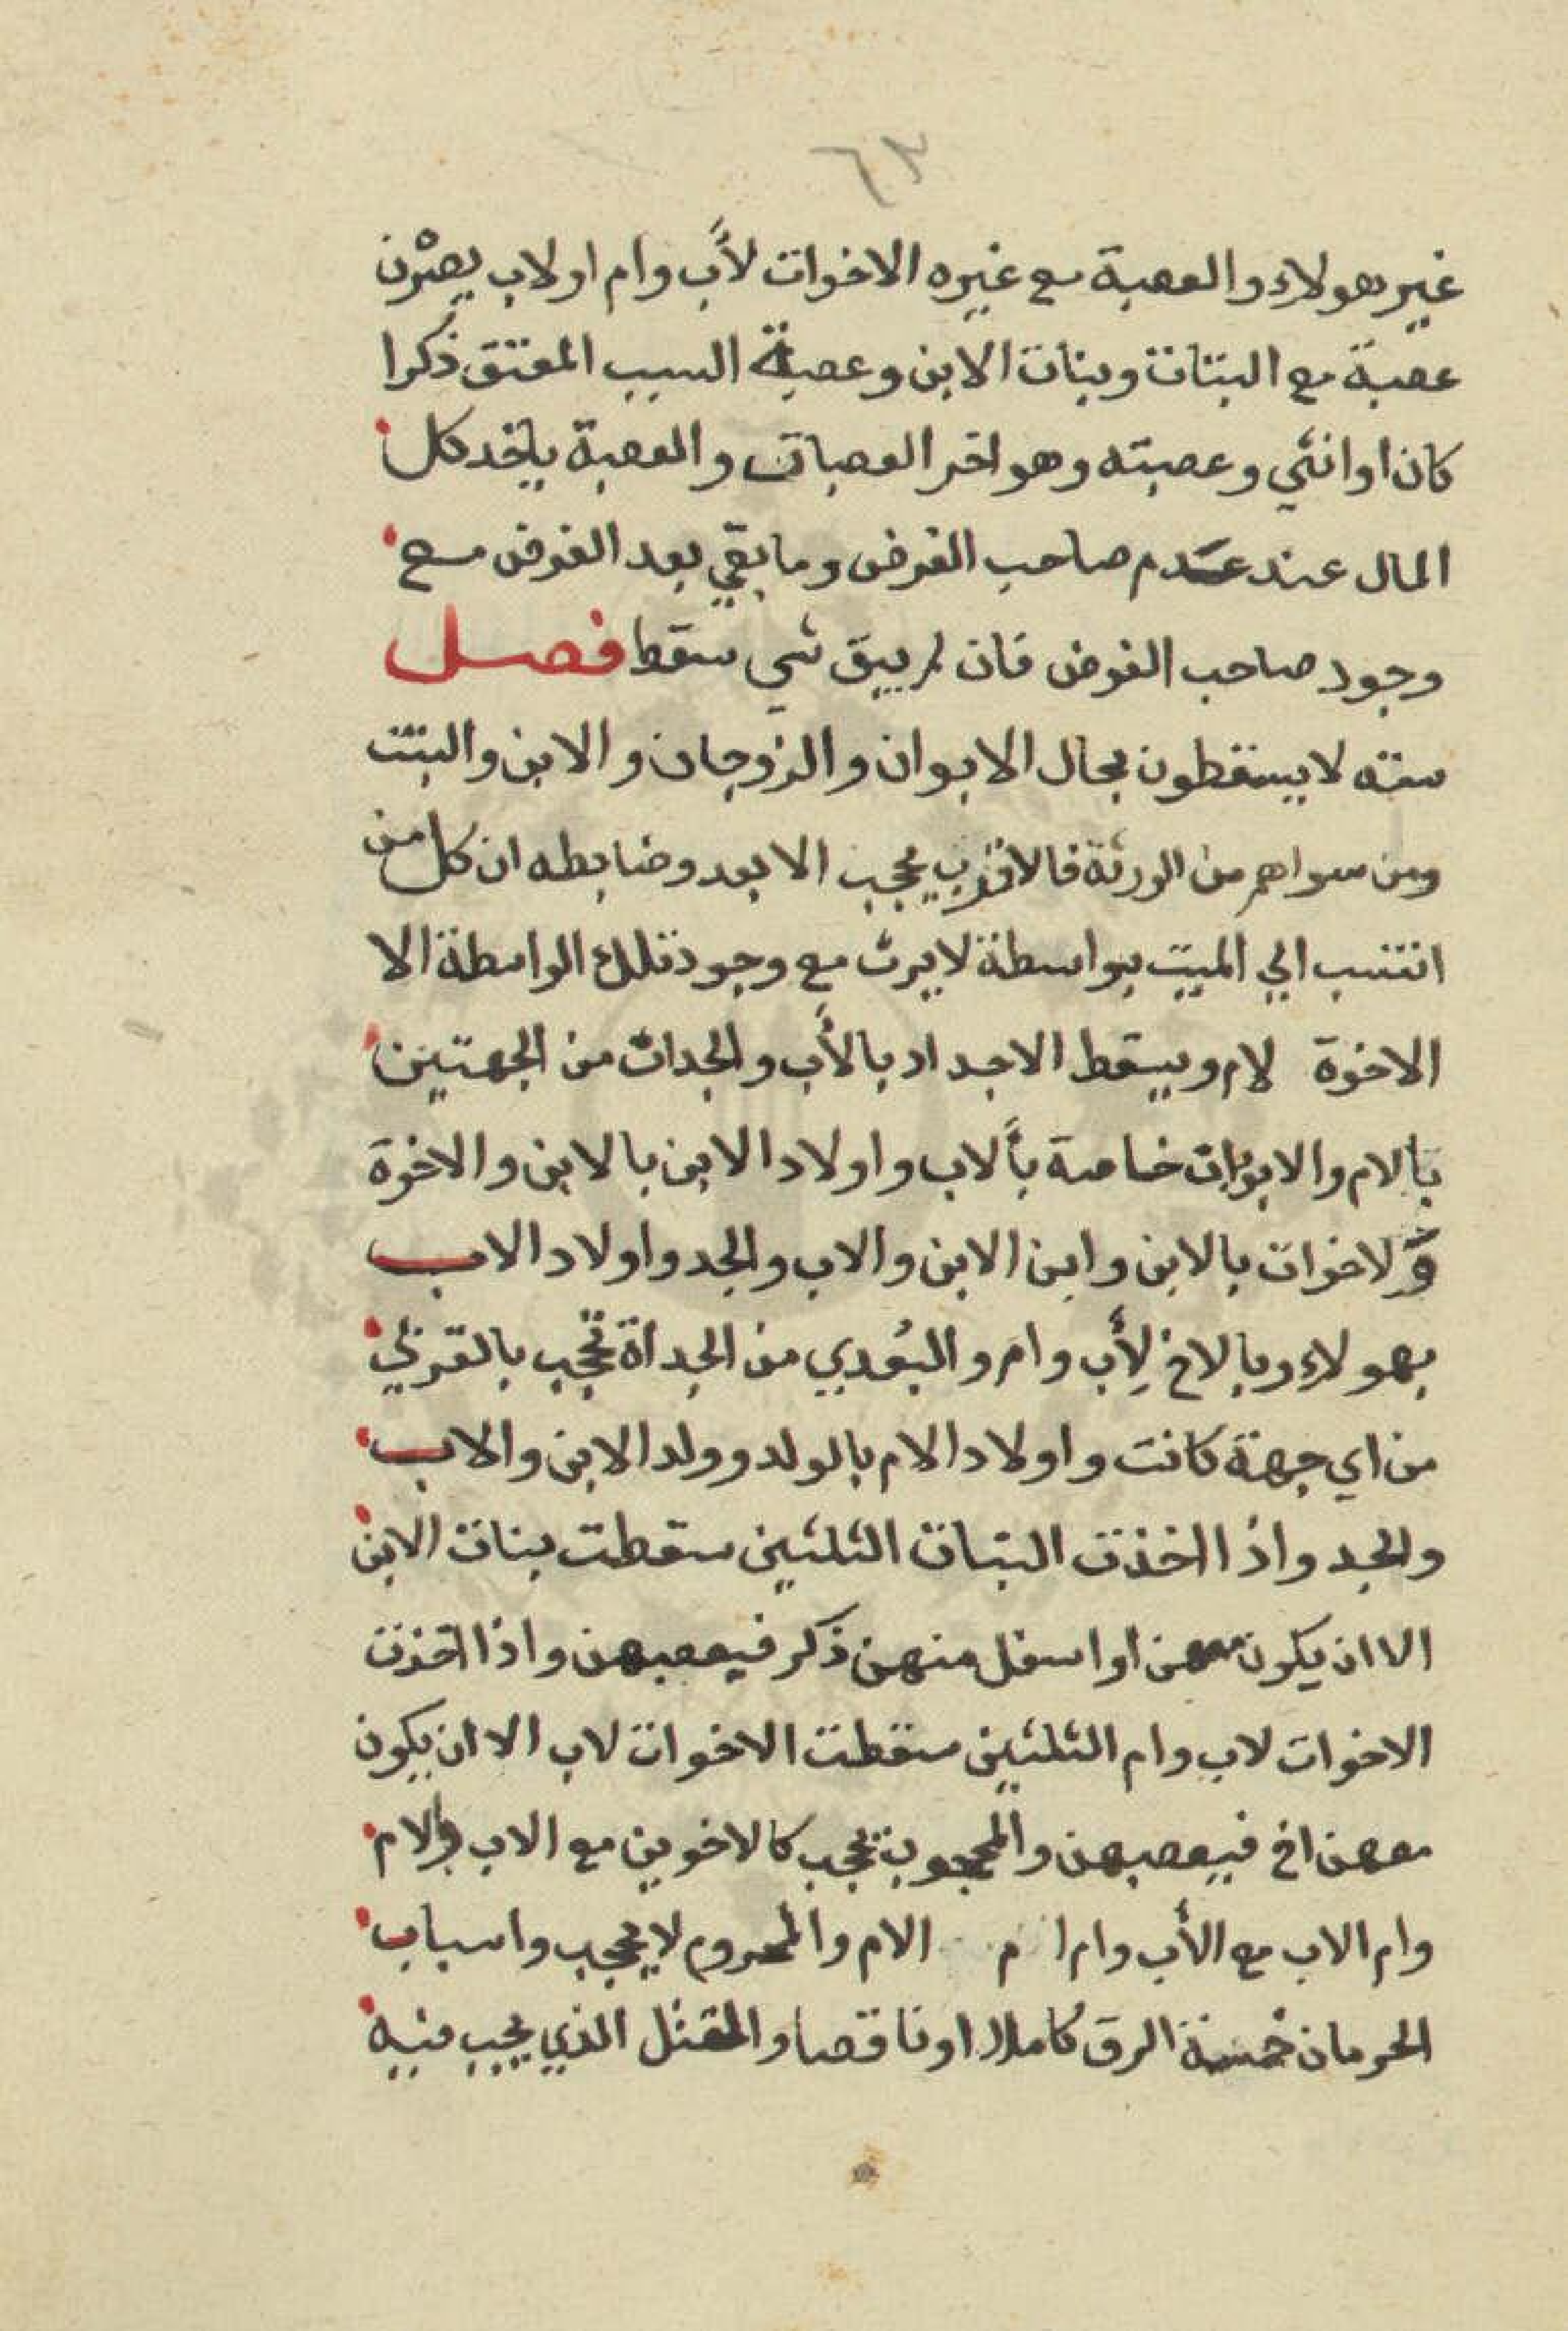 ٦٣
غير هولاء والعصبة مع غيره الاخوات لأب وام او لاب يصرن
عصبة مع البنات وبنات الابن وعصبة السبب المعتق ذكرا
كان او انثي وعصبته وهو اخر العصبات والعصبة ياخد كل
المال عند عدم صاحب الفرض وما بقي بعد الفرض مع
وجود صاحب الفرض فان لم يبق شي سقط فصل
ستة لا يسقطون بحال الابوان والزوجان والابن والبنت
ومن سواهم من الورثة فالاقرب يحجب الابعد وضابطه ان كل من
انتسب الي الميت بواسطة لا يرث مع وجود تلك الواسطة الا
الاخوة لام ويسقط الاجداد بالأب والجدات من الجهتين
بالام والابويات خاصة بالاب واولاد الابن بالابن والاخوة
والاخوات بالابن وابن الابن والاب والجد واولاد الاب
بهولاء وبالاخ لأب وام والبعدي من الجداة تحجب بالقربي
من اي جهة كانت واولاد الام بالولد وولد الابن والاب
والجد واذا اخذت البنات الثلثين سقطت بنات الابن
الا ان يكون معهن او اسفل منهن ذكر فيعصبهن واذا اخذت
الاخوات لاب وام الثلثين سقطت الاخوات لاب الا ان يكون
معهن اخ فيعصبهن والمحجوب يحجب كالاخوين مع الاب والام
وام الاب مع الأب وام ا م الام والمحروم لا يحجب واسباب
الحرمان خمسة الرق كاملا او ناقصا والقتل الذي يجب فيه